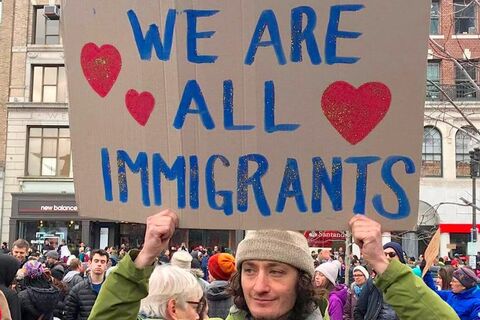 WE ARE
ALL
IMMIGRANTS
new balance
Santander